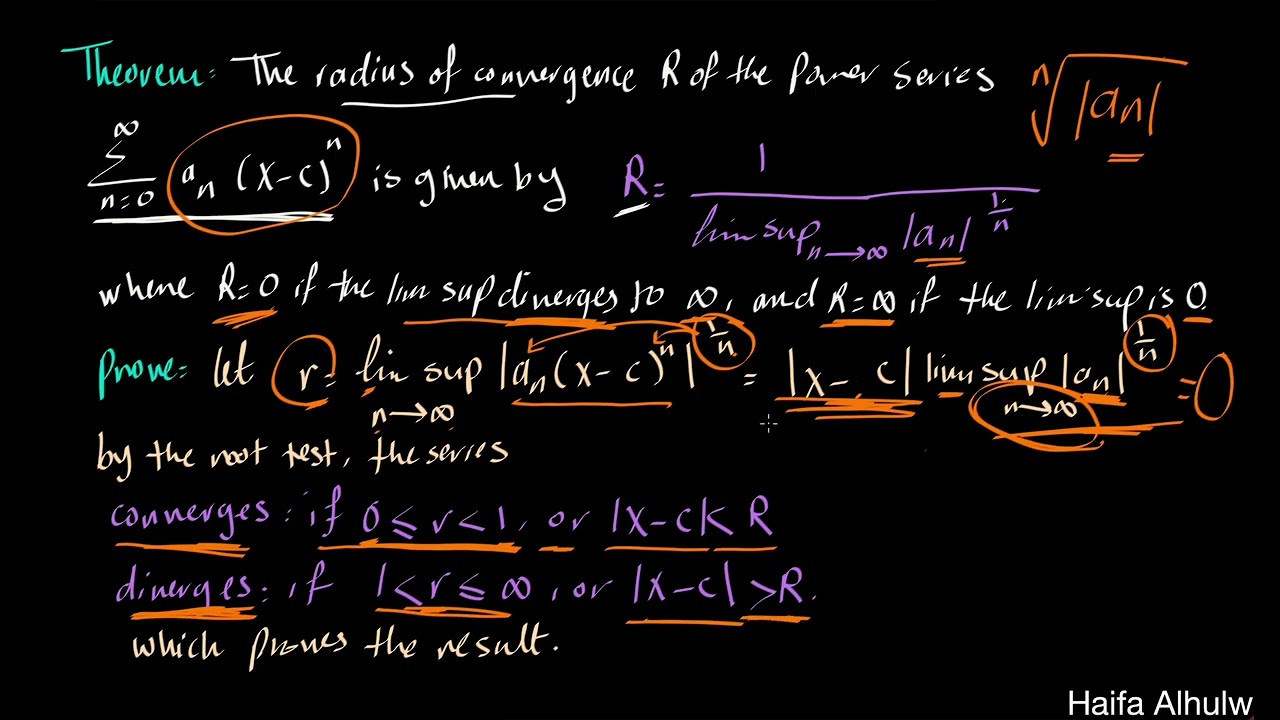 Theorem: The radius of convergence R of the Power series
ⁿ√|aₙ|
∑_{n=0}^{∞} aₙ (x-c)ⁿ is given by R = 1 / (lim sup_{n→∞} |aₙ|^{1/n})
where R=0 if the lim sup diverges to ∞, and R=∞ if the lim sup is 0
Prove: let r = lim sup_{n→∞} |aₙ(x-c)ⁿ|^{1/n} = |x-c| lim sup_{n→∞} |aₙ|^{1/n} = 0
by the root test, the series
converges: if 0 ≤ r < 1, or |x-c| < R
diverges: if 1 < r ≤ ∞, or |x-c| > R.
which proves the result.
Haifa Alhulw